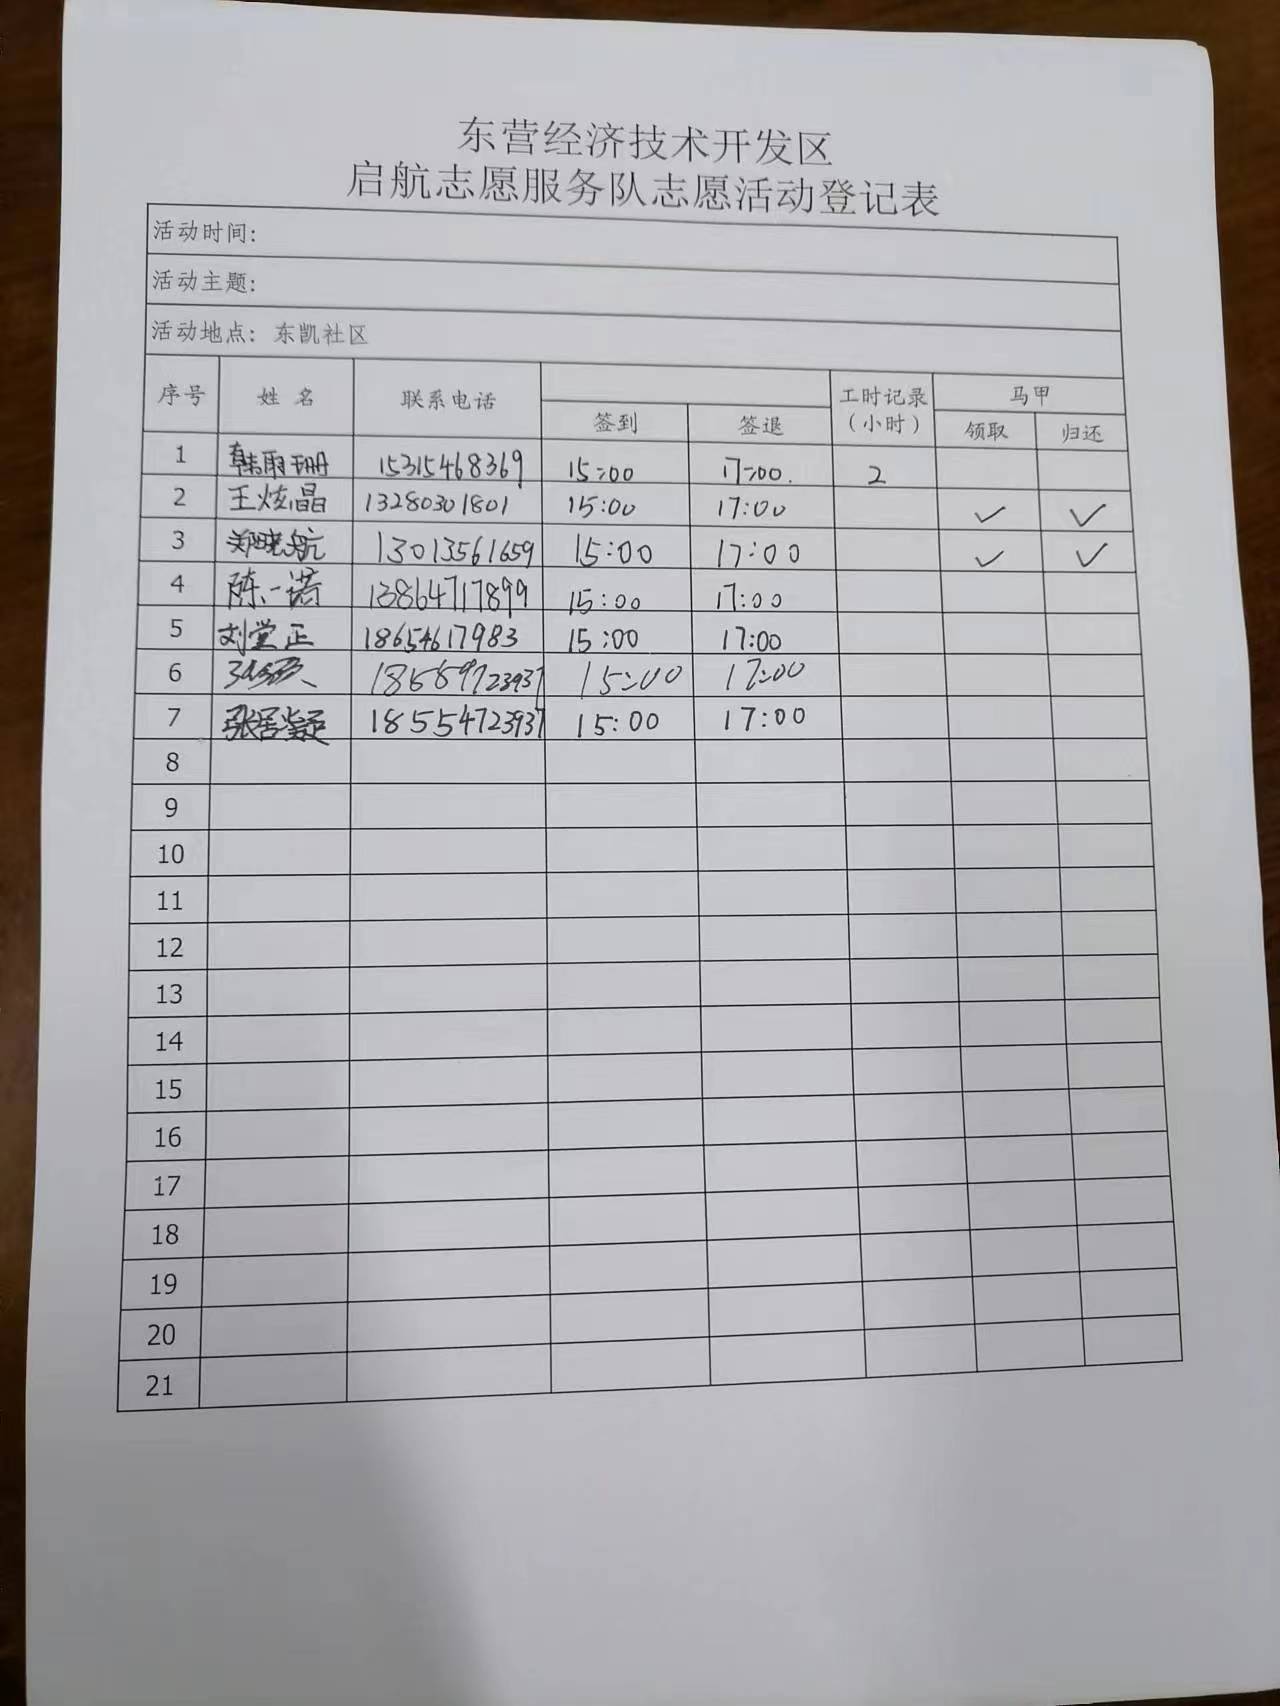 东营经济技术开发区
启航志愿服务队志愿活动登记表
活动时间:
活动主题:
活动地点: 东凯社区
序号 姓 名 联系电话 签到 签退 工时记录(小时) 马甲 领取 归还
1 韩雨珊 15315468369 15:00 17:00. 2
2 王炫晶 13280301801 15:00 17:00 ✓ ✓
3 郑晓航 13013561659 15:00 17:00 ✓ ✓
4 陈一诺 13864717899 15:00 17:00
5 刘堂正 18654617983 15:00 17:00
6 15:00 17:00
7 18554723937 15:00 17:00
8
9
10
11
12
13
14
15
16
17
18
19
20
21